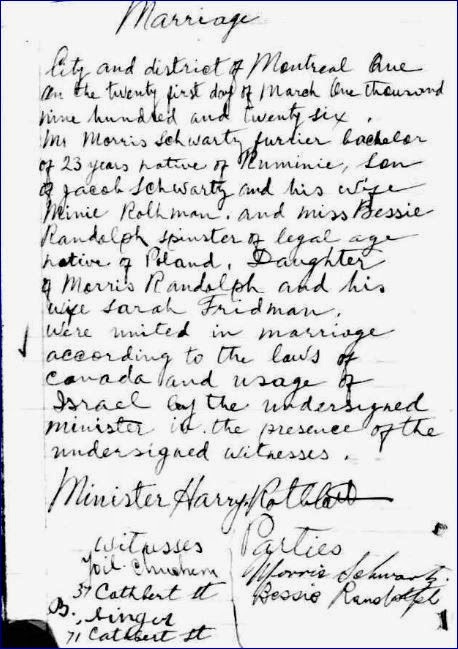 Marriage
City and district of Montreal Que
on the twenty first day of March One thousand
nine hundred and twenty six.
Mr Morris Schwartz furrier bachelor
of 23 years native of Ruminie, Son
of Jacob Schwartz and his wife
Minie Rothman. and miss Bessie
Randolph spinster of legal age
native of Poland. Daughter
of Morris Randolph and his
wife Sarah Fridman.
Were united in marriage
according to the laws of
Canada and usage of
Israel by the undersigned
minister in the presence of the
undersigned witnesses.
Minister Harry Rothbart
Witnesses
37 Cuthbert st
B. Singer
71 Cuthbert st
Parties
Morris Schwartz.
Bessie Randolph